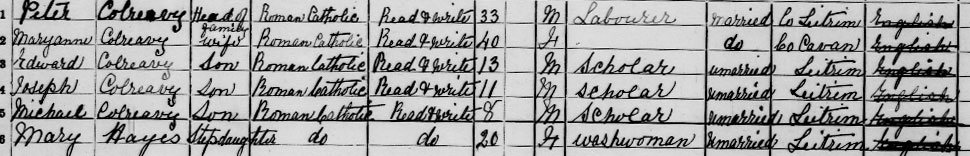 1 Peter Colreavy Head of Family Roman Catholic Read & Write 33 M Labourer Married Co Leitrim English
2 Maryanne Colreavy Wife Roman Catholic Read & Write 40 F do Co Cavan English
3 Edward Colreavy Son Roman Catholic Read & Write 13 M Scholar unmarried Leitrim English
4 Joseph Colreavy Son Roman Catholic Read & Write 11 M Scholar unmarried Leitrim English
5 Michael Colreavy Son Roman Catholic Read & Write 8 M Scholar unmarried Leitrim English
6 Mary Hayes Stepdaughter do do 20 F washwoman unmarried Leitrim English